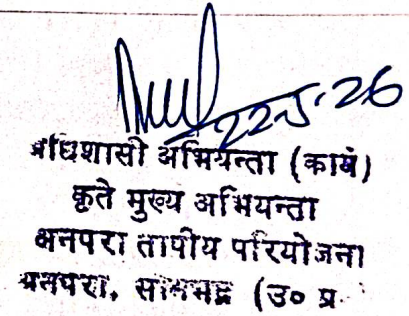 22.5.26
अधिशासी अभियन्ता (कार्य)
कृते मुख्य अभियन्ता
अनपरा तापीय परियोजना
अनपरा, सोनभद्र (उ० प्र